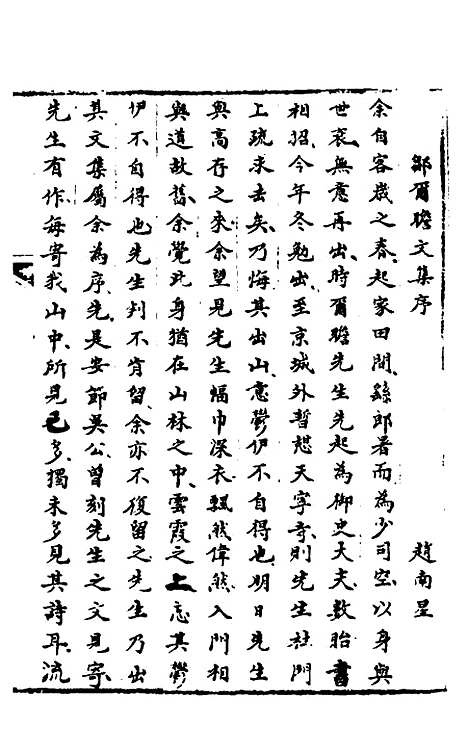 鄒爾瞻文集序　趙南星
余自客歲之春起家田間繇郎署而為少司空以身與
世衰無意再出時爾瞻先生先起為御史大夫數貽書
相招今年冬勉出至京城外暫憇天寧寺則先生杜門
上疏求去矣乃悔其出山意鬱伊不自得也明日先生
與高存之來余望見先生幅巾深衣飄然偉然入門相
與道故舊余覺此身猶在山林之中雲霞之上忘其鬱
伊不自得也先生判不肯留余亦不復留之先生乃出
其文集屬余為序先是安節吳公曾刻先生之文見寄
先生有作每寄我山中所見已多獨未多見其詩耳流